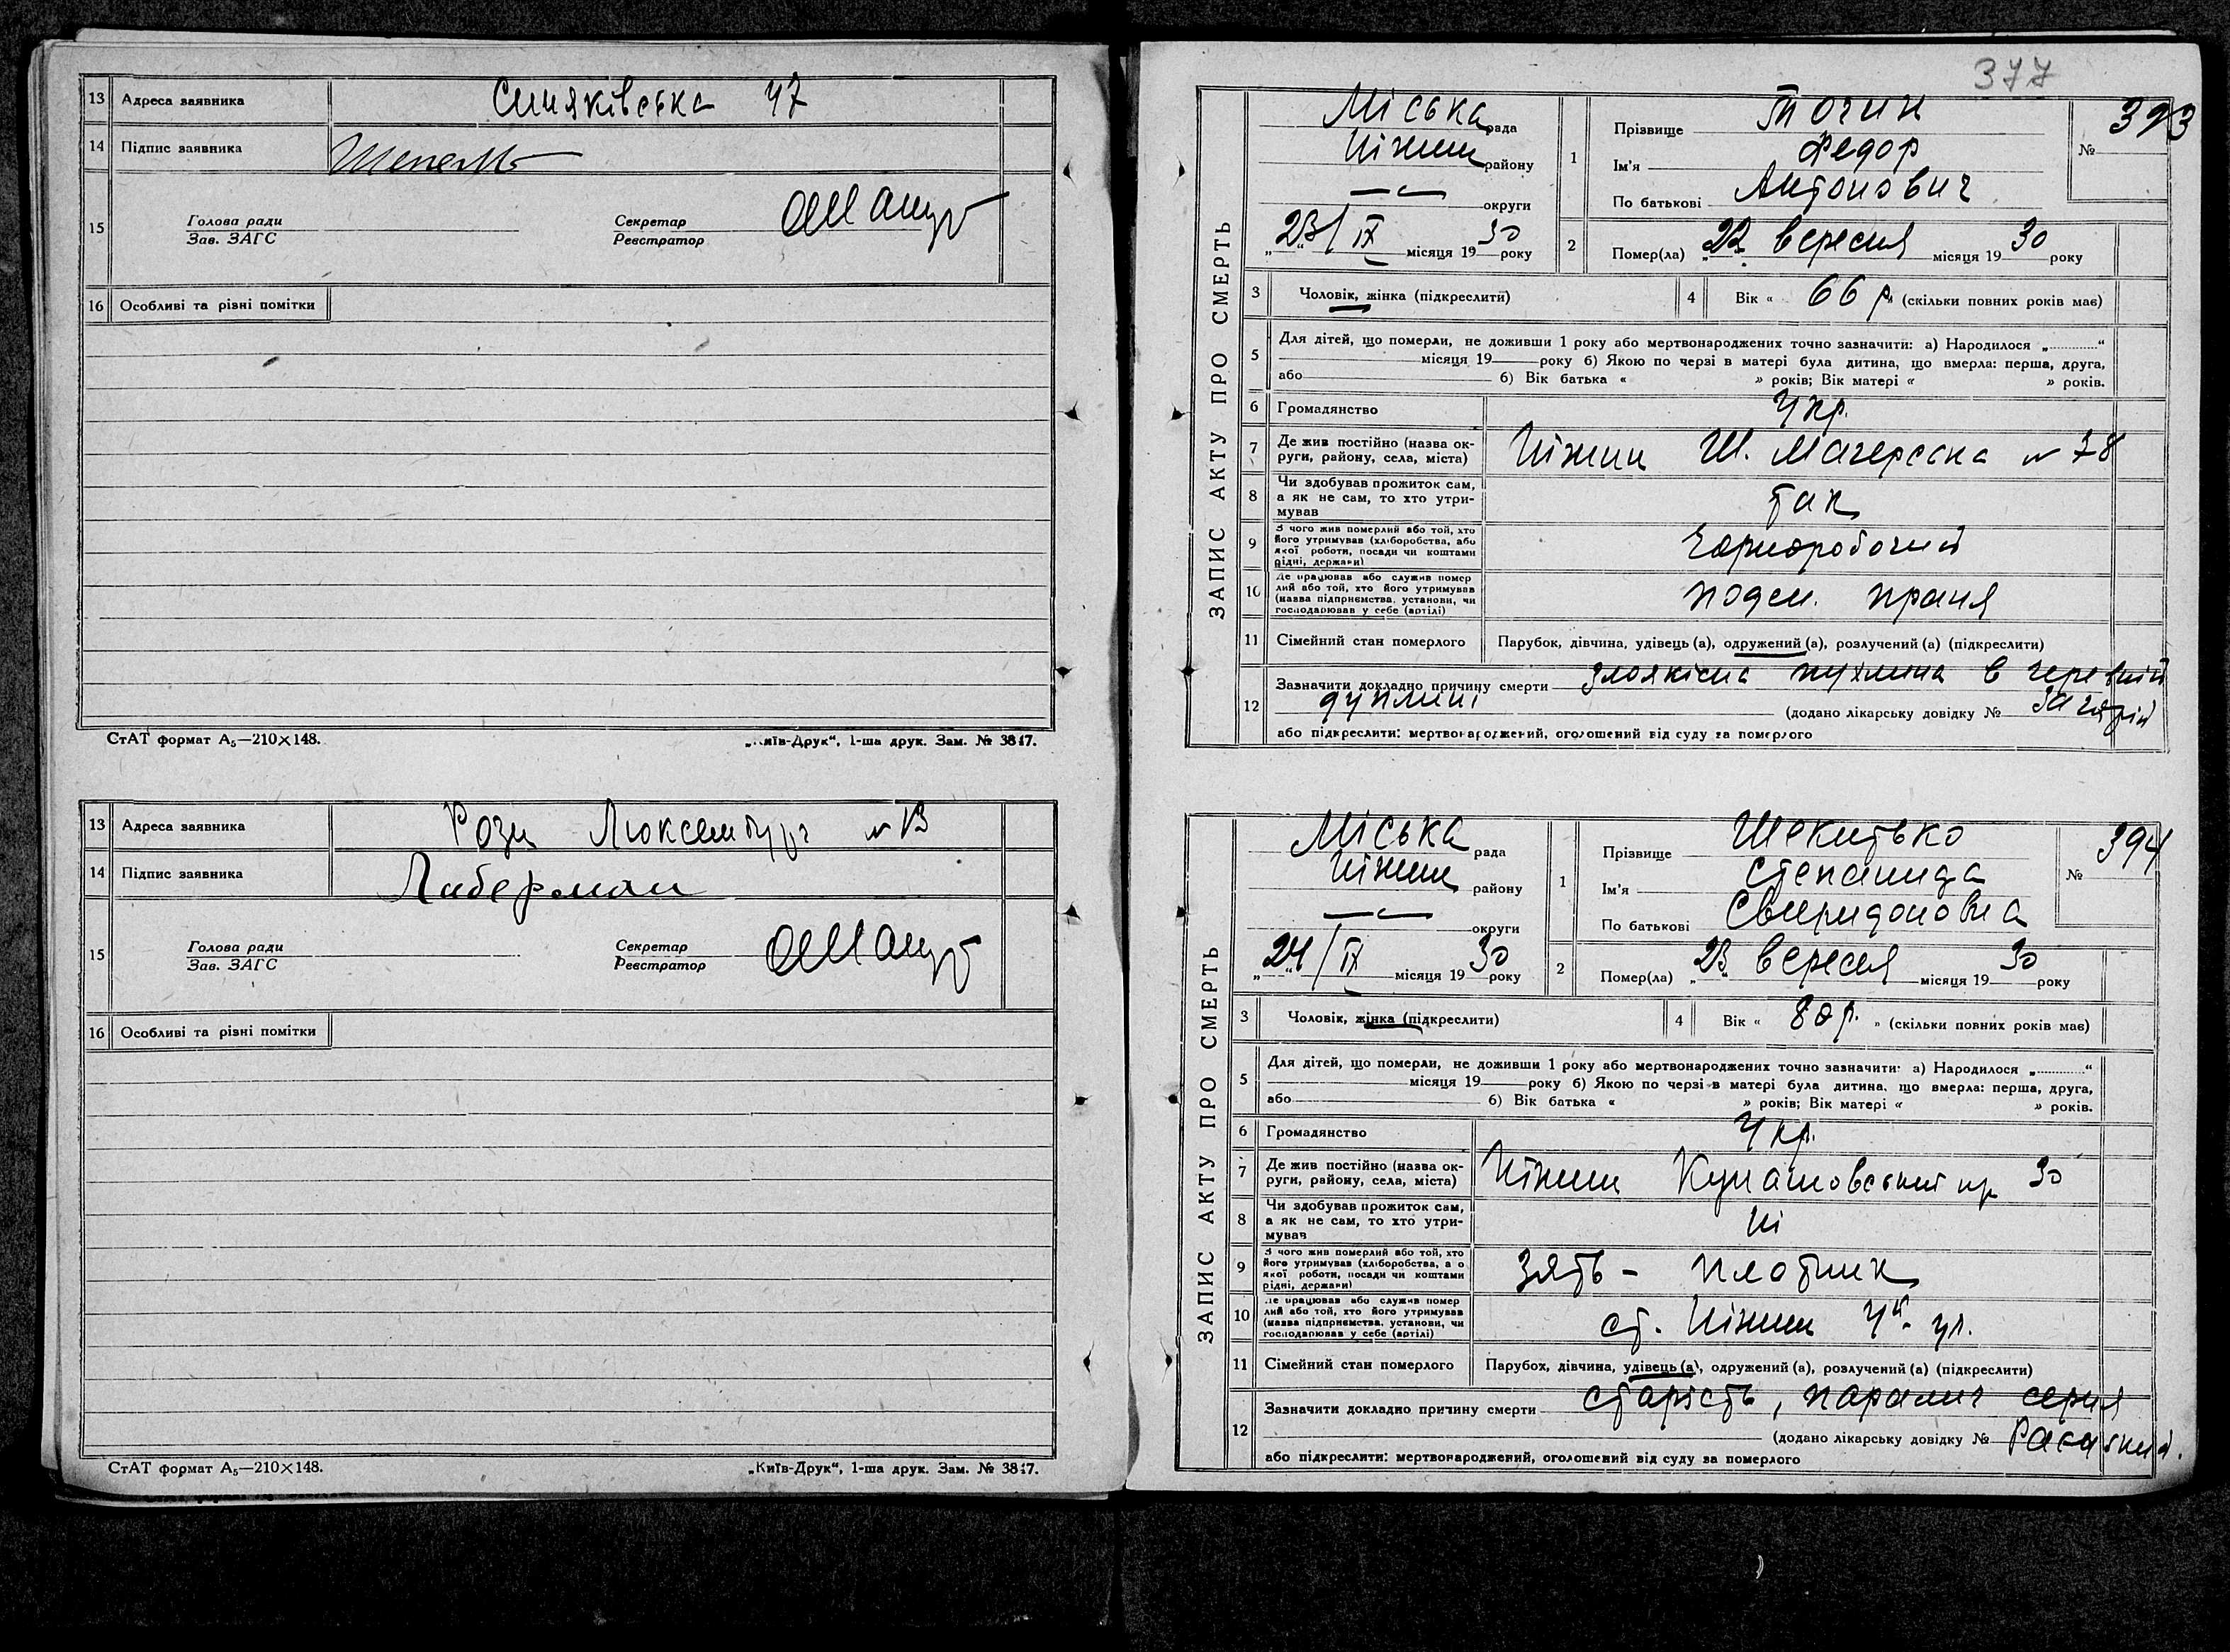 13 Адреса заявника Синяківська 47
14 Підпис заявника
15 Голова ради
Зав. ЗАГС
Секретар
Реєстратор
16 Особливі та різні помітки
СтАТ формат А5—210×148.
„Київ-Друк“, 1-ша друк. Зам. № 3817.
13 Адреса заявника Рози Люксембург № 13
14 Підпис заявника Либерман
15 Голова ради
Зав. ЗАГС
Секретар
Реєстратор
16 Особливі та різні помітки
СтАТ формат А5—210×148.
„Київ-Друк“, 1-ша друк. Зам. № 3817.
377
ЗАПИС АКТУ ПРО СМЕРТЬ
Міська рада
Ніжин району
округи
„23/ІХ місяця 1930 року
1 Прізвище Точин
Ім'я Федор
По батькові Антонович
№ 393
2 Помер(ла) „22 вересня місяця 1930 року
3 Чоловік, жінка (підкреслити)
4 Вік « 66 р. (скільки повних років має)
5 Для дітей, що померли, не доживши 1 року або мертвонароджених точно зазначити: а) Народилося „............“
місяця 19 року б) Якою по черзі в матері була дитина, що вмерла: перша, друга,
або б) Вік батька « » років; Вік матері « » років.
6 Громадянство Укр.
7 Де жив постійно (назва округи, району, села, міста) Ніжин Ш. № 78
8 Чи здобував прожиток сам,
а як не сам, то хто утримував так
9 З чого жив померлий або той, хто
його утримував (хліборобства, або
якої роботи, посади чи коштами
рідні, держави) Чорноробочий
10 Де працював або служив померлий або той, хто його утримував
(назва підприємства, установи, чи
господарював у себе (артілі) поден. праця
11 Сімейний стан померлого Парубок, дівчина, удівець (а), одружений (а), розлучений (а) (підкреслити)
12 Зазначити докладно причину смерти злоякісна пухлина в черевній
дуплині (додано лікарську довідку №
або підкреслити: мертвонароджений, оголошений від суду за померлого
ЗАПИС АКТУ ПРО СМЕРТЬ
Міська рада
Ніжин району
округи
„24/ІХ місяця 1930 року
1 Прізвище Шекитько
Ім'я Степанида
По батькові Свиридоновна
№ 394
2 Помер(ла) „23 вересня місяця 1930 року
3 Чоловік, жінка (підкреслити)
4 Вік « 80 р. » (скільки повних років має)
5 Для дітей, що померли, не доживши 1 року або мертвонароджених точно зазначити: а) Народилося „............“
місяця 19 року б) Якою по черзі в матері була дитина, що вмерла: перша, друга,
або б) Вік батька « » років; Вік матері « » років.
6 Громадянство Укр.
7 Де жив постійно (назва округи, району, села, міста) Ніжин Кунашовський пр 30
8 Чи здобував прожиток сам,
а як не сам, то хто утримував Ні
9 З чого жив померлий або той, хто
його утримував (хліборобства, або
якої роботи, посади чи коштами
рідні, держави) Зять - плотник
10 Де працював або служив померлий або той, хто його утримував
(назва підприємства, установи, чи
господарював у себе (артілі) ст. Ніжин
11 Сімейний стан померлого Парубок, дівчина, удівець (а), одружений (а), розлучений (а) (підкреслити)
12 Зазначити докладно причину смерти старість, паралич серця
(додано лікарську довідку №
або підкреслити: мертвонароджений, оголошений від суду за померлого